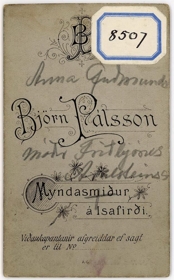 B
8507
Anna Guðmunds
Björn Pálsson
móðir Þorbjörns
Myndasmiður
á Ísafirði.
Vedurkapantanir afgreiddar ef sagt
er til Nº